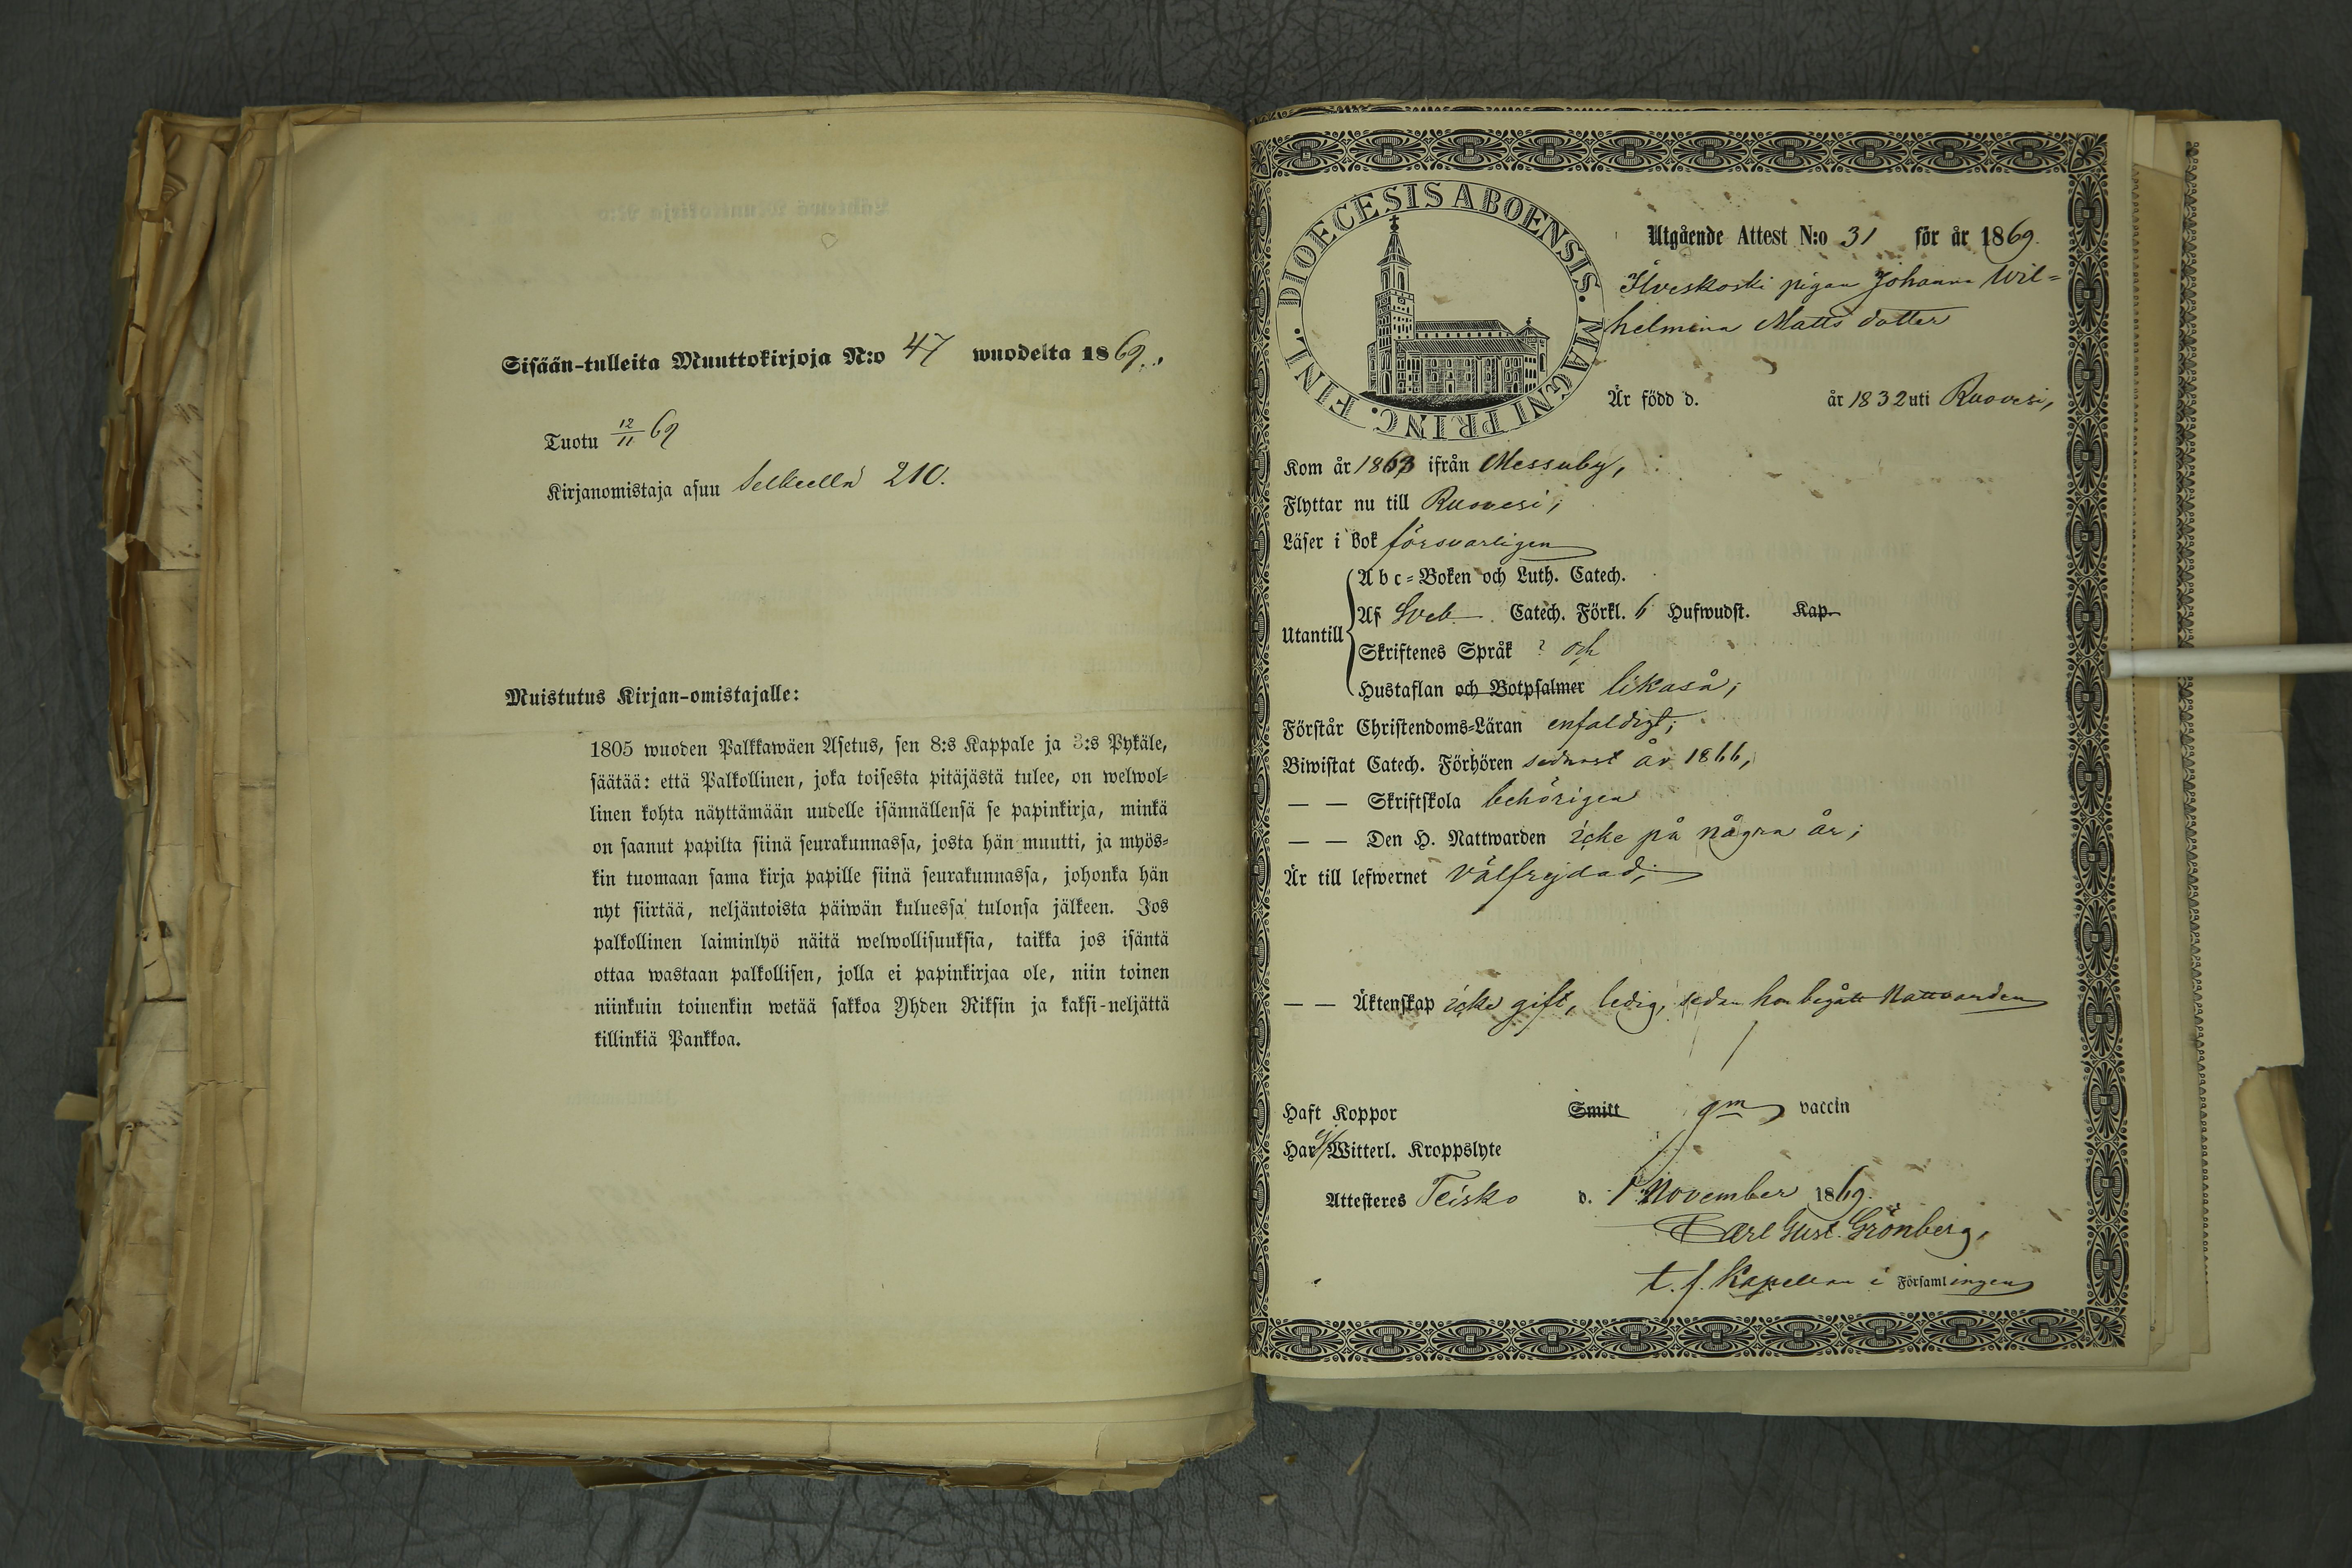 Sisään-tulleita Muuttokirjoja N:o 47 wuodelta 1869.
Tuotu 12/11 69
Kirjanomistaja asuu Selkeellä 210.
Muistutus Kirjan-omistajalle:
1805 wuoden Palkkawäen Asetus, sen 8:s Kappale ja 3:s Pykäle,
säätää: että Palkollinen, joka toisesta pitäjästä tulee, on welwol-
linen kohta näyttämään uudelle isännällensä se papinkirja, minkä
on saanut papilta siinä seurakunnassa, josta hän muutti, ja myös-
kin tuomaan sama kirja papille siinä seurakunnassa, johonka hän
nyt siirtää, neljäntoista päiwän kuluessa tulonsa jälkeen. Jos
palkollinen laiminlyö näitä welwollisuuksia, taikka jos isäntä
ottaa wastaan palkollisen, jolla ei papinkirjaa ole, niin toinen
niinkuin toinenkin wetää sakkoa Yhden Riksin ja kaksi-neljättä
killinkiä Pankkoa.
DIOECESIS ABOENSIS. MAGNI PRINC. FINL.
Utgående Attest N:o 31 för år 1869.
Ilveskoski pigan Johanna Wil=
helmina Matts dotter
Är född d. år 1832 uti Ruovesi,
Kom år 1863 ifrån Messuby,
Flyttar nu till Ruovesi;
Läser i Bok försvarligen
Abc=Boken och Luth. Catech.
Utantill
Af Sveb. Catech. Förkl. 6 Hufwudst. Kap.
Skriftenes Språk ? och
Hustaflan och Botpsalmer likaså;
Förstår Christendoms=Läran enfaldigt;
Biwistat Catech. Förhören sednast år 1866,
— — Skriftskola behörigen
— — Den H. Nattwarden icke på några år;
Är till lefwernet välfrejdad;
— — Äktenskap icke gift, ledig, sedan hon begått Nattvarden
Haft Koppor Smitt gm vaccin
Har ej Witterl. Kroppslyte
Attesteres Teisko d. 1 November 1869.
Carl Gust. Grönberg,
t. f. Kapellan i Församlingen